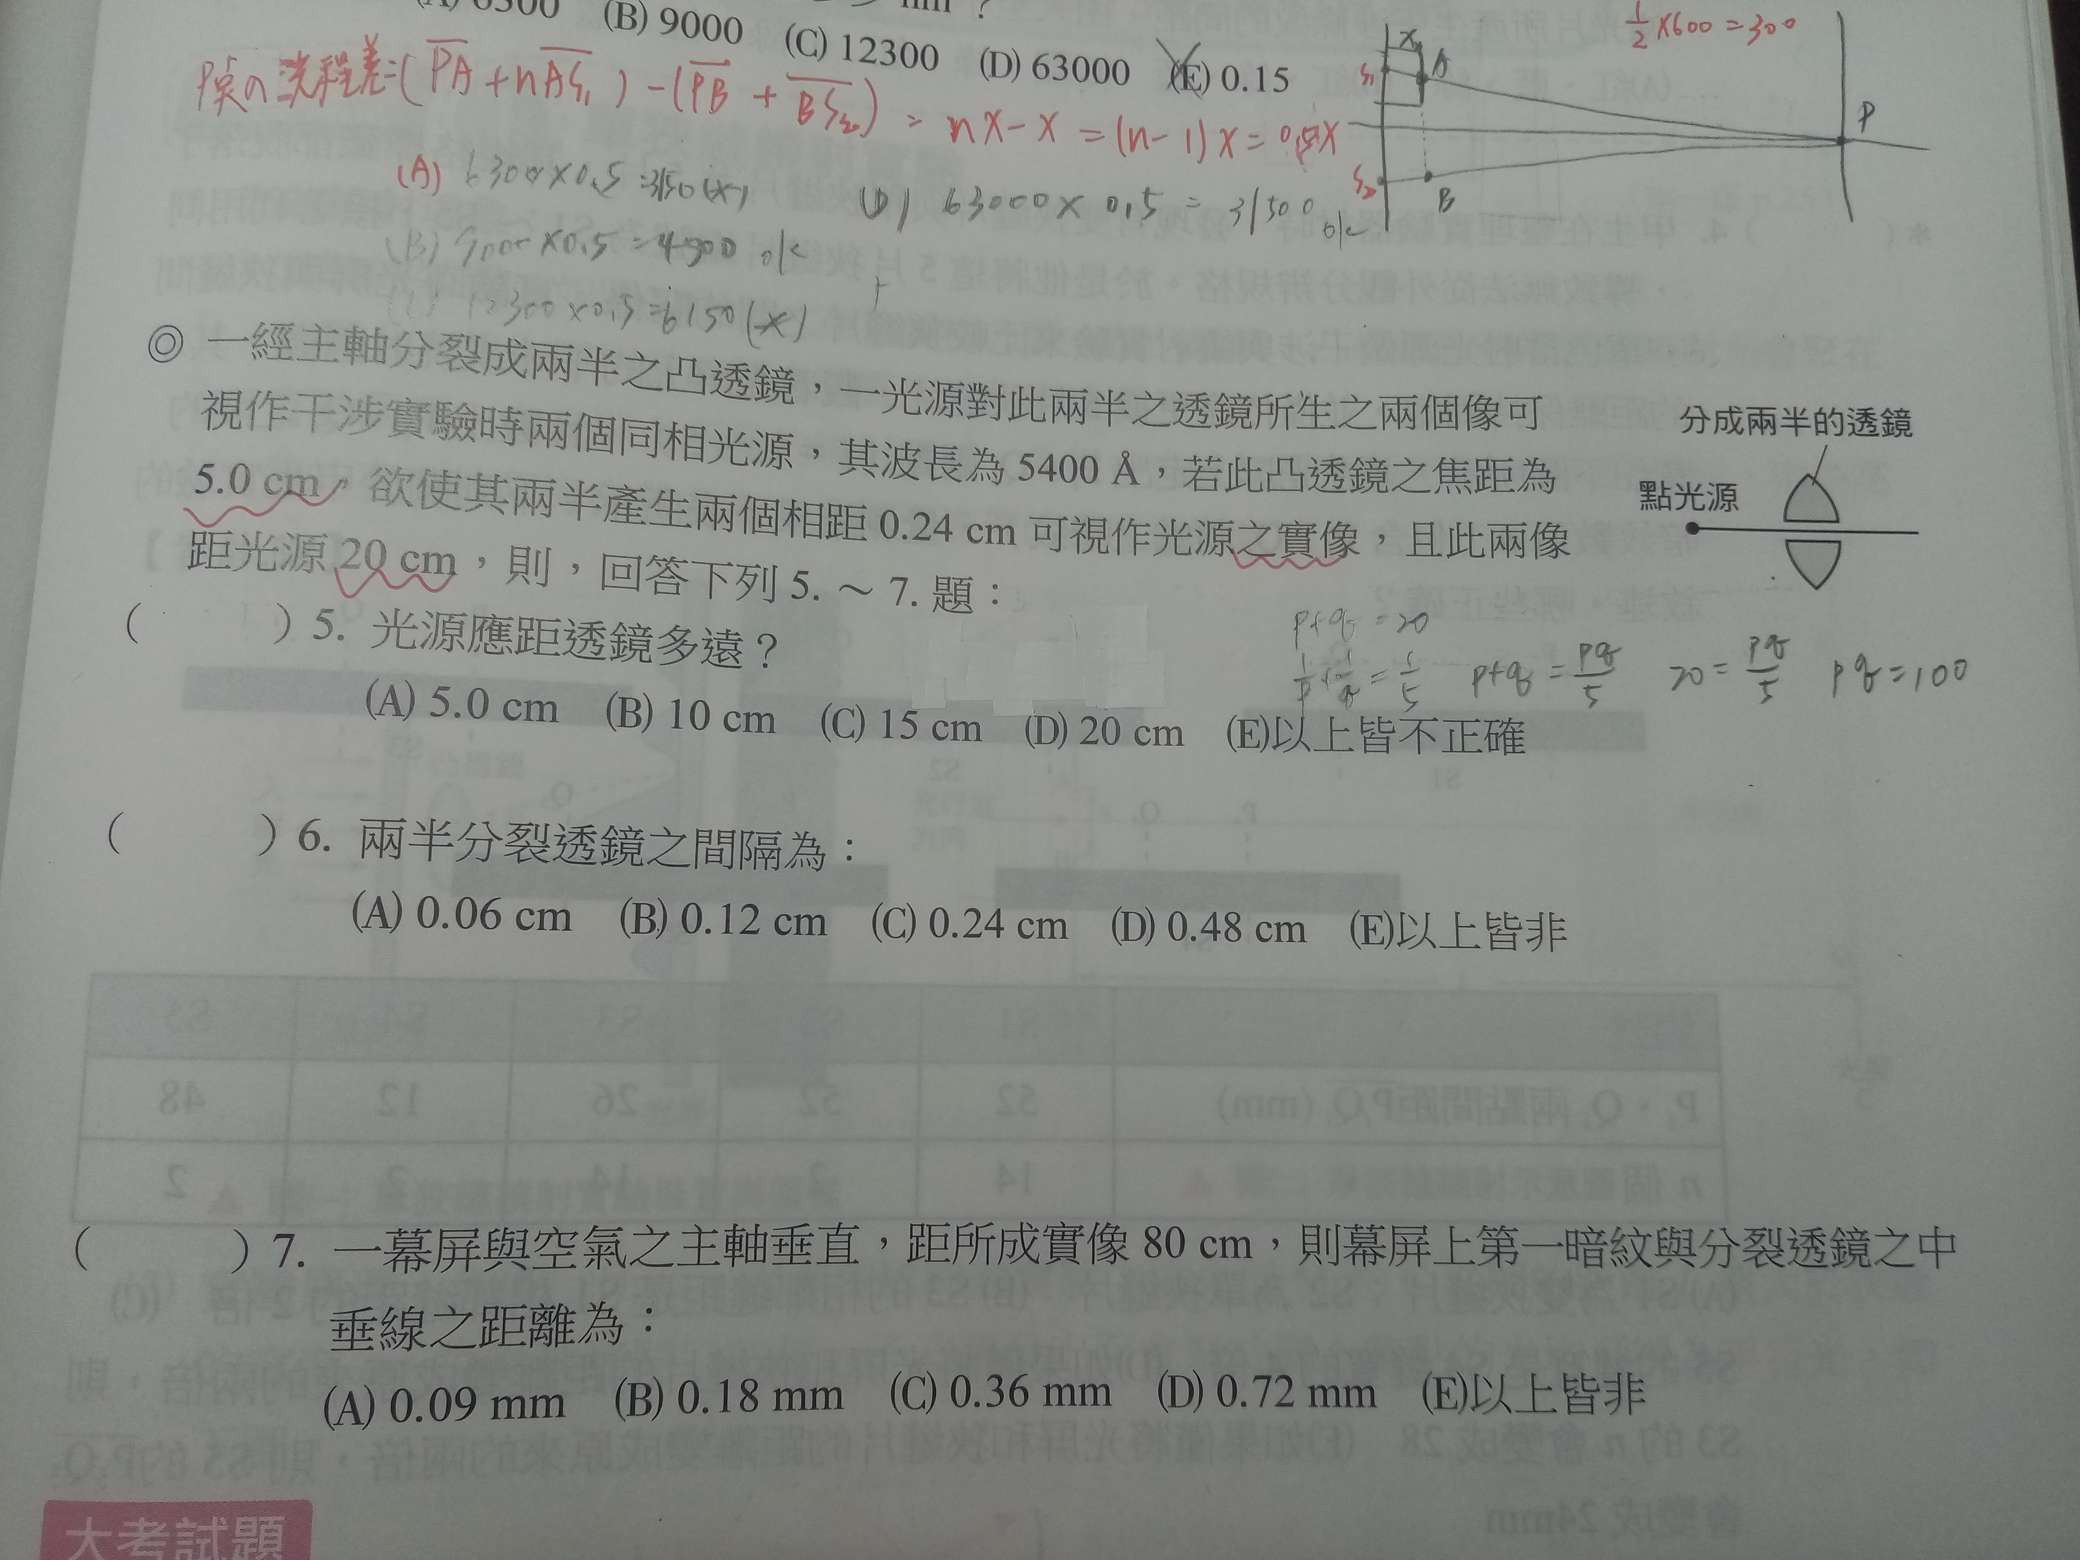 (B) 9000 (C) 12300 (D) 63000 (E) 0.15
½×600=300
P点の光程差=(PA+nAS₁)-(PB+BS₂) = nx-x = (n-1)x = 0.5x
x
S₁
A
P
S₂
B
(A) 6300×0.5=3150(x)
(D) 63000×0.5 = 31500 ok
(B) 9000×0.5=4500 ok
12300×0.5=6150(x)
◎ 一經主軸分裂成兩半之凸透鏡，一光源對此兩半之透鏡所生之兩個像可
視作干涉實驗時兩個同相光源，其波長為 5400 Å，若此凸透鏡之焦距為
5.0 cm，欲使其兩半產生兩個相距 0.24 cm 可視作光源之實像，且此兩像
距光源 20 cm，則，回答下列 5. ～ 7. 題：
分成兩半的透鏡
點光源
( ) 5. 光源應距透鏡多遠？
(A) 5.0 cm (B) 10 cm (C) 15 cm (D) 20 cm (E)以上皆不正確
p+q=20
1/p+1/q=1/5 p+q=pq/5 20=pq/5 pq=100
( ) 6. 兩半分裂透鏡之間隔為：
(A) 0.06 cm (B) 0.12 cm (C) 0.24 cm (D) 0.48 cm (E)以上皆非
( ) 7. 一幕屏與空氣之主軸垂直，距所成實像 80 cm，則幕屏上第一暗紋與分裂透鏡之中
垂線之距離為：
(A) 0.09 mm (B) 0.18 mm (C) 0.36 mm (D) 0.72 mm (E)以上皆非
大考試題